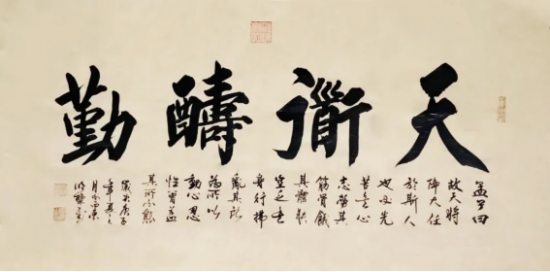 天衜醻勤
孟子曰
故天將
降大任
於斯人
也必先
苦其心
志勞其
筋骨餓
其體膚
空乏其
身行拂
亂其所
為所以
動心忍
性曾益
其所不能
歲次庚子